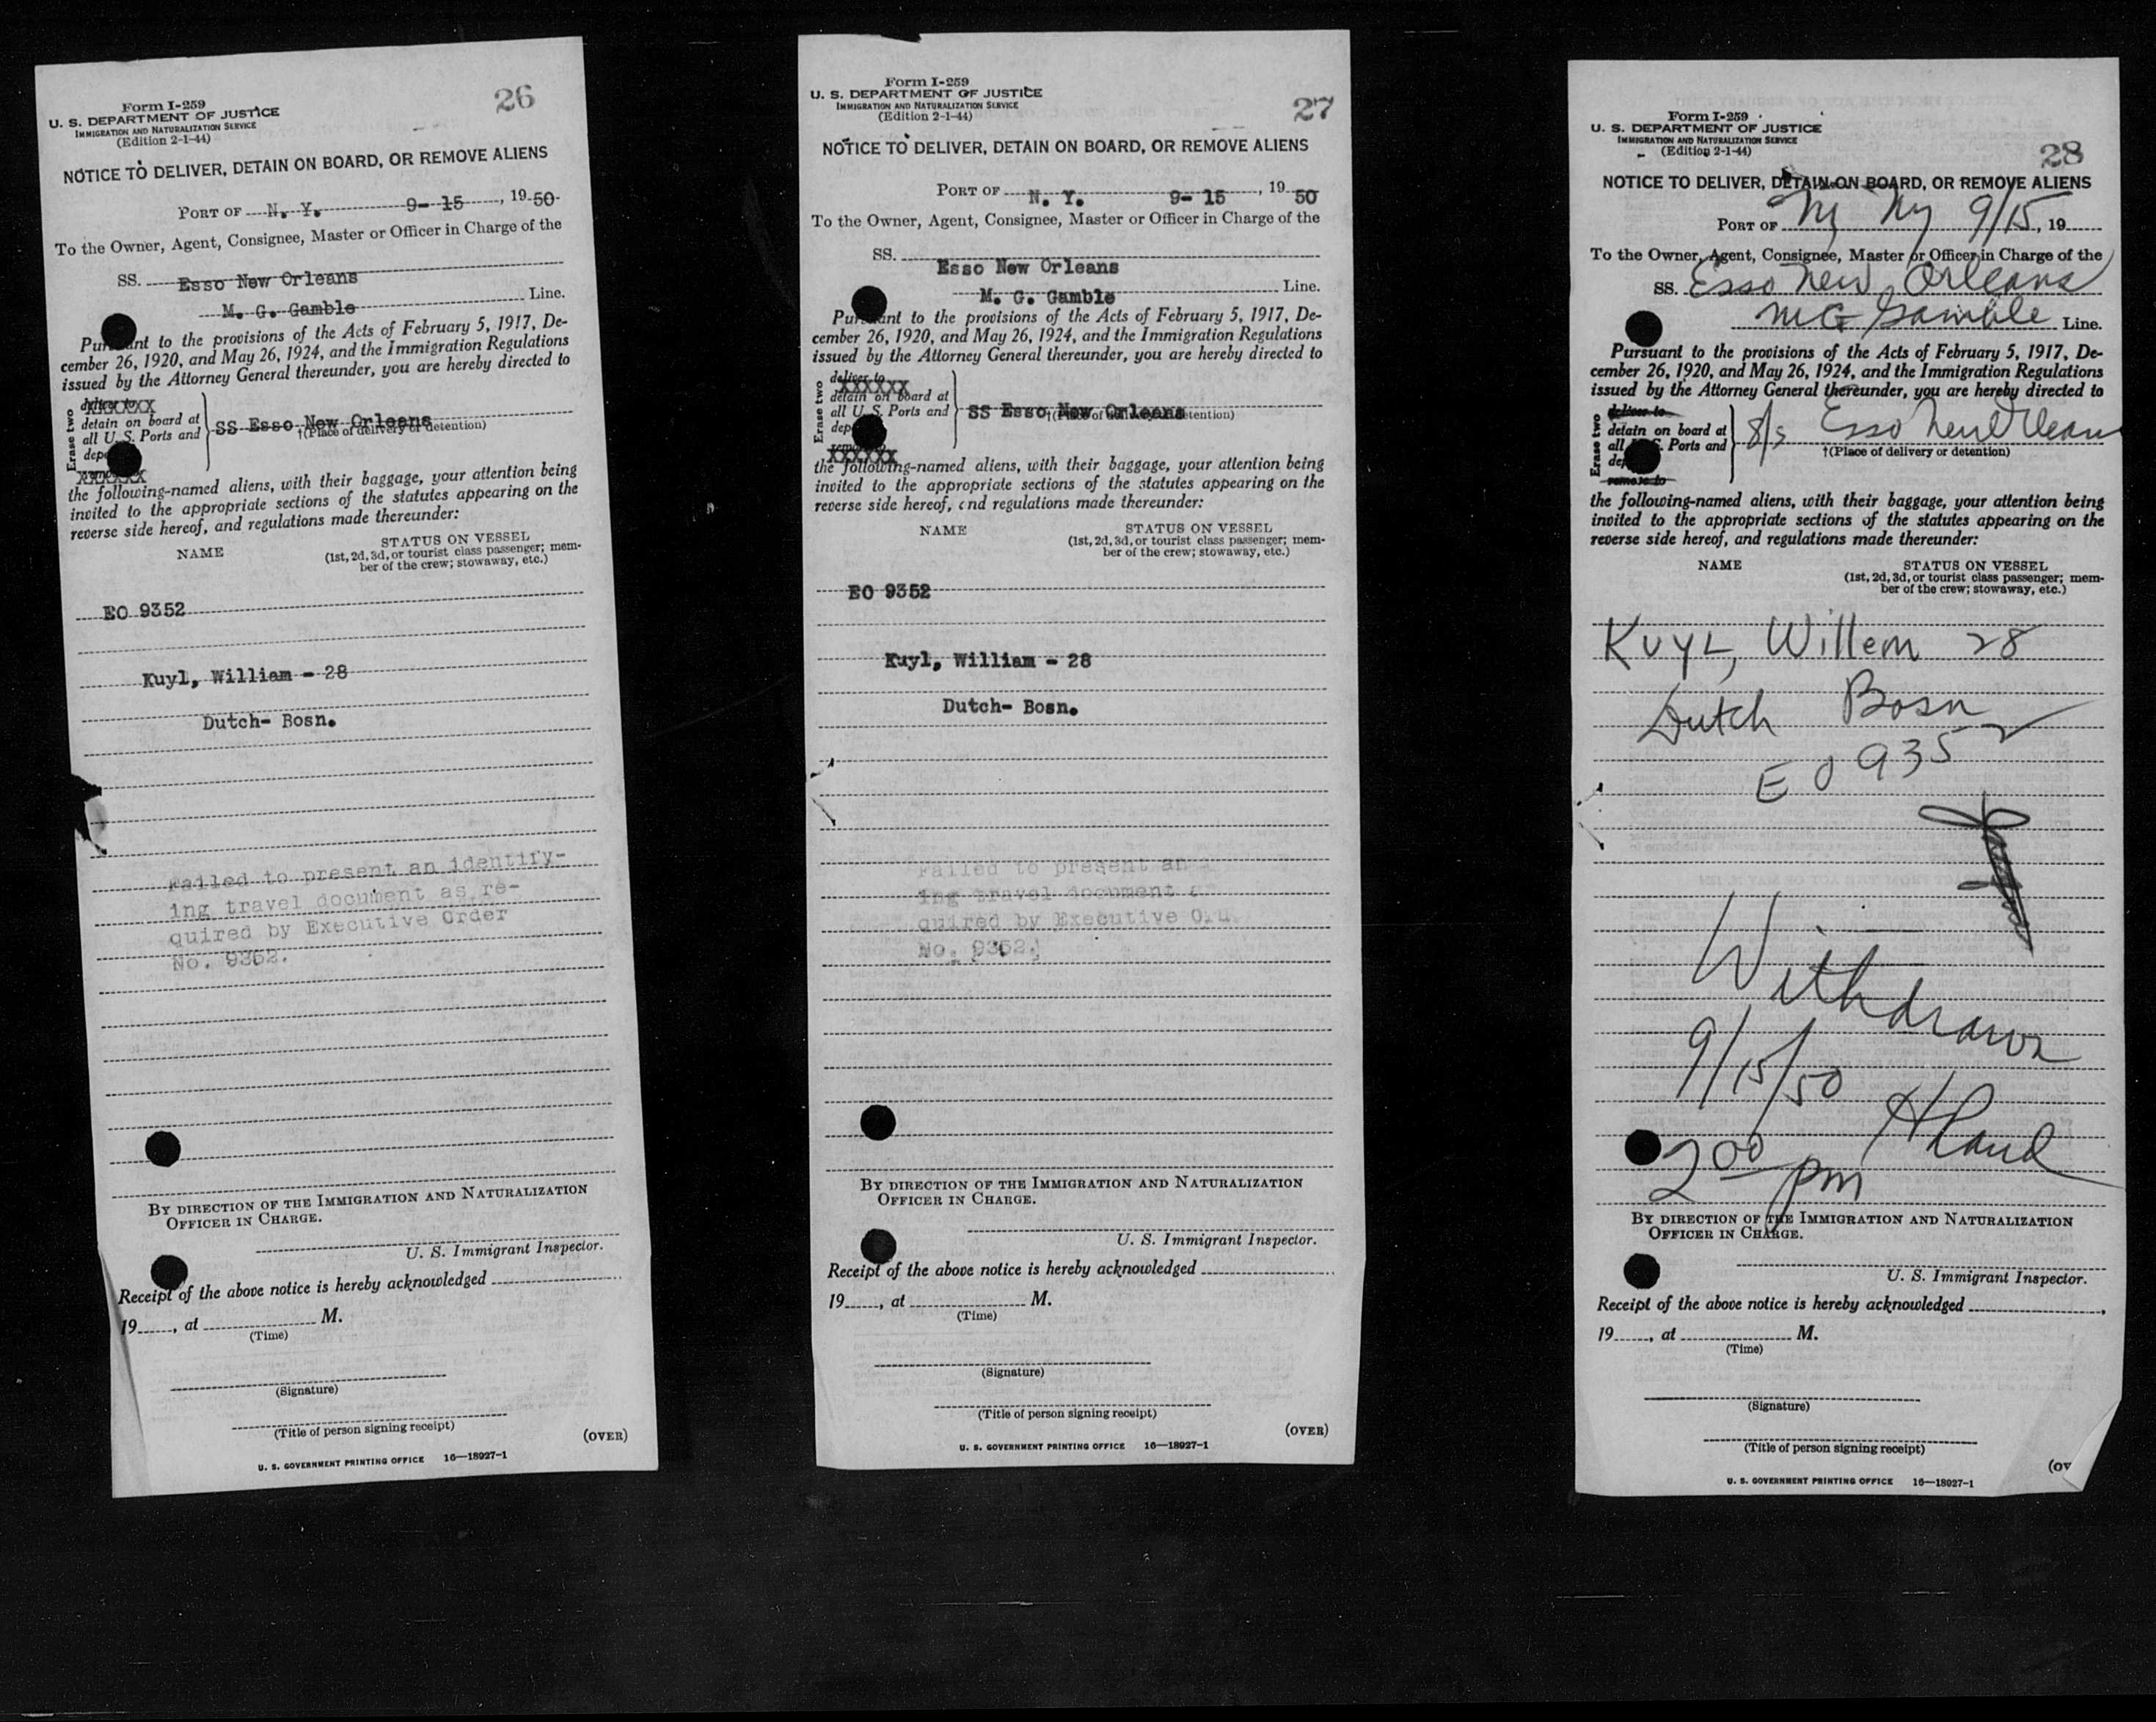 26
Form I-259
U. S. DEPARTMENT OF JUSTICE
IMMIGRATION AND NATURALIZATION SERVICE
(Edition 2-1-44)
NOTICE TO DELIVER, DETAIN ON BOARD, OR REMOVE ALIENS
PORT OF N. Y. 9- 15, 19 50
To the Owner, Agent, Consignee, Master or Officer in Charge of the
SS. Esso New Orleans
M. G. Gamble Line.
Pursuant to the provisions of the Acts of February 5, 1917, De-
cember 26, 1920, and May 26, 1924, and the Immigration Regulations
issued by the Attorney General thereunder, you are hereby directed to
Erase two
deliver to
XXXXXX
detain on board at
all U. S. Ports and
SS Esso New Orleans
†(Place of delivery or detention)
XXXXXX
the following-named aliens, with their baggage, your attention being
invited to the appropriate sections of the statutes appearing on the
reverse side hereof, and regulations made thereunder:
NAME
STATUS ON VESSEL
(1st, 2d, 3d, or tourist class passenger; mem-
ber of the crew; stowaway, etc.)
EO 9352
Kuyl, William - 28
Dutch- Bosn.
Failed to present an identify-
ing travel document as re-
quired by Executive Order
No. 9352.
BY DIRECTION OF THE IMMIGRATION AND NATURALIZATION
OFFICER IN CHARGE.
U. S. Immigrant Inspector.
Receipt of the above notice is hereby acknowledged
19, at M.
(Time)
(Signature)
(Title of person signing receipt)
(OVER)
U. S. GOVERNMENT PRINTING OFFICE 16—18927-1
27
Form I-259
U. S. DEPARTMENT OF JUSTICE
IMMIGRATION AND NATURALIZATION SERVICE
(Edition 2-1-44)
NOTICE TO DELIVER, DETAIN ON BOARD, OR REMOVE ALIENS
PORT OF N. Y. 9- 15, 19 50
To the Owner, Agent, Consignee, Master or Officer in Charge of the
SS. Esso New Orleans
M. G. Gamble Line.
Pursuant to the provisions of the Acts of February 5, 1917, De-
cember 26, 1920, and May 26, 1924, and the Immigration Regulations
issued by the Attorney General thereunder, you are hereby directed to
Erase two
deliver to
XXXXXX
detain on board at
all U. S. Ports and
SS Esso New Orleans
†(Place of delivery or detention)
remove to
XXXXXX
the following-named aliens, with their baggage, your attention being
invited to the appropriate sections of the statutes appearing on the
reverse side hereof, and regulations made thereunder:
NAME
STATUS ON VESSEL
(1st, 2d, 3d, or tourist class passenger; mem-
ber of the crew; stowaway, etc.)
EO 9352
Kuyl, William - 28
Dutch- Bosn.
Failed to present an
ing travel document
quired by Executive
No. 9352.
BY DIRECTION OF THE IMMIGRATION AND NATURALIZATION
OFFICER IN CHARGE.
U. S. Immigrant Inspector.
Receipt of the above notice is hereby acknowledged
19, at M.
(Time)
(Signature)
(Title of person signing receipt)
(OVER)
U. S. GOVERNMENT PRINTING OFFICE 16—18927-1
Form I-259
U. S. DEPARTMENT OF JUSTICE
IMMIGRATION AND NATURALIZATION SERVICE
(Edition 2-1-44)
28
NOTICE TO DELIVER, DETAIN ON BOARD, OR REMOVE ALIENS
PORT OF Ny Ny 9/15, 19
To the Owner, Agent, Consignee, Master or Officer in Charge of the
SS. Esso New Orleans
MG Gamble Line.
Pursuant to the provisions of the Acts of February 5, 1917, De-
cember 26, 1920, and May 26, 1924, and the Immigration Regulations
issued by the Attorney General thereunder, you are hereby directed to
Erase two
deliver to
detain on board at
all U. S. Ports and
S/s Esso New Orleans
†(Place of delivery or detention)
remove to
the following-named aliens, with their baggage, your attention being
invited to the appropriate sections of the statutes appearing on the
reverse side hereof, and regulations made thereunder:
NAME
STATUS ON VESSEL
(1st, 2d, 3d, or tourist class passenger; mem-
ber of the crew; stowaway, etc.)
KUYL, Willem 28
Dutch Bosn
EO 9352
Withdrawn
9/15/50
2 00 pm
BY DIRECTION OF THE IMMIGRATION AND NATURALIZATION
OFFICER IN CHARGE.
U. S. Immigrant Inspector.
Receipt of the above notice is hereby acknowledged
19, at M.
(Time)
(Signature)
(Title of person signing receipt)
(OV
U. S. GOVERNMENT PRINTING OFFICE 16—18927-1